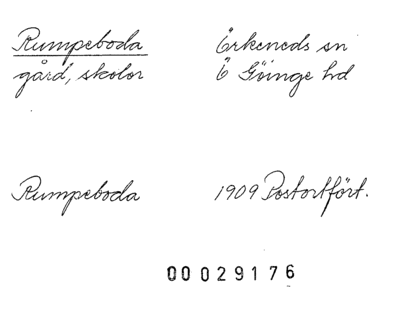 Rumpeboda Örkeneds sn
gård, skolor Ö Göinge hd
Rumpeboda 1909 Postortfört.
00029176